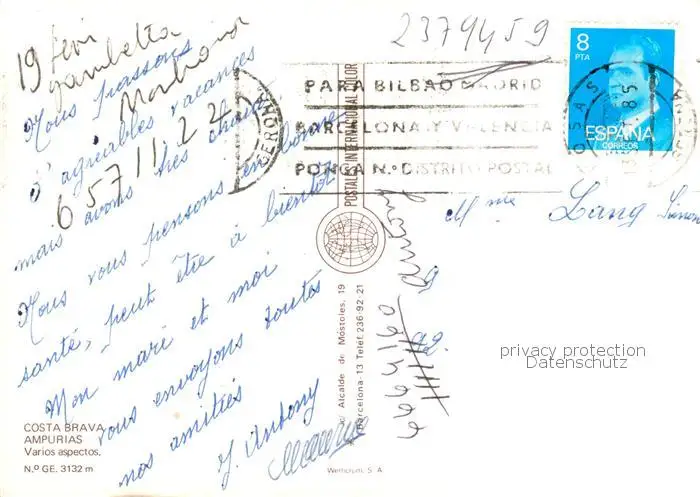 19 févri
gambetta
2379459
8
PTA
ESPAÑA
CORREOS
PARA BILBAO MADRID
BARCELONA Y VALENCIA
PONGA N.º DISTRITO POSTAL
ROSAS
85
GERONA
6 57 11 22
Nous passons
d'agréables vacances
mais avons très chaud.
Nous vous pensons en bonne
santé, peut être à bientôt
Mon mari et moi
vous envoyons toutes
nos amitiés
J. Antony
Mme Lang
POSTAL INTERNATIONAL COLOR
c/ Alcalde de Móstoles, 19
Barcelona-13 Telef. 236-92-21
COSTA BRAVA
AMPURIAS
Varios aspectos.
N.º GE. 3132 m
Wemcrum, S. A.
privacy protection
Datenschutz